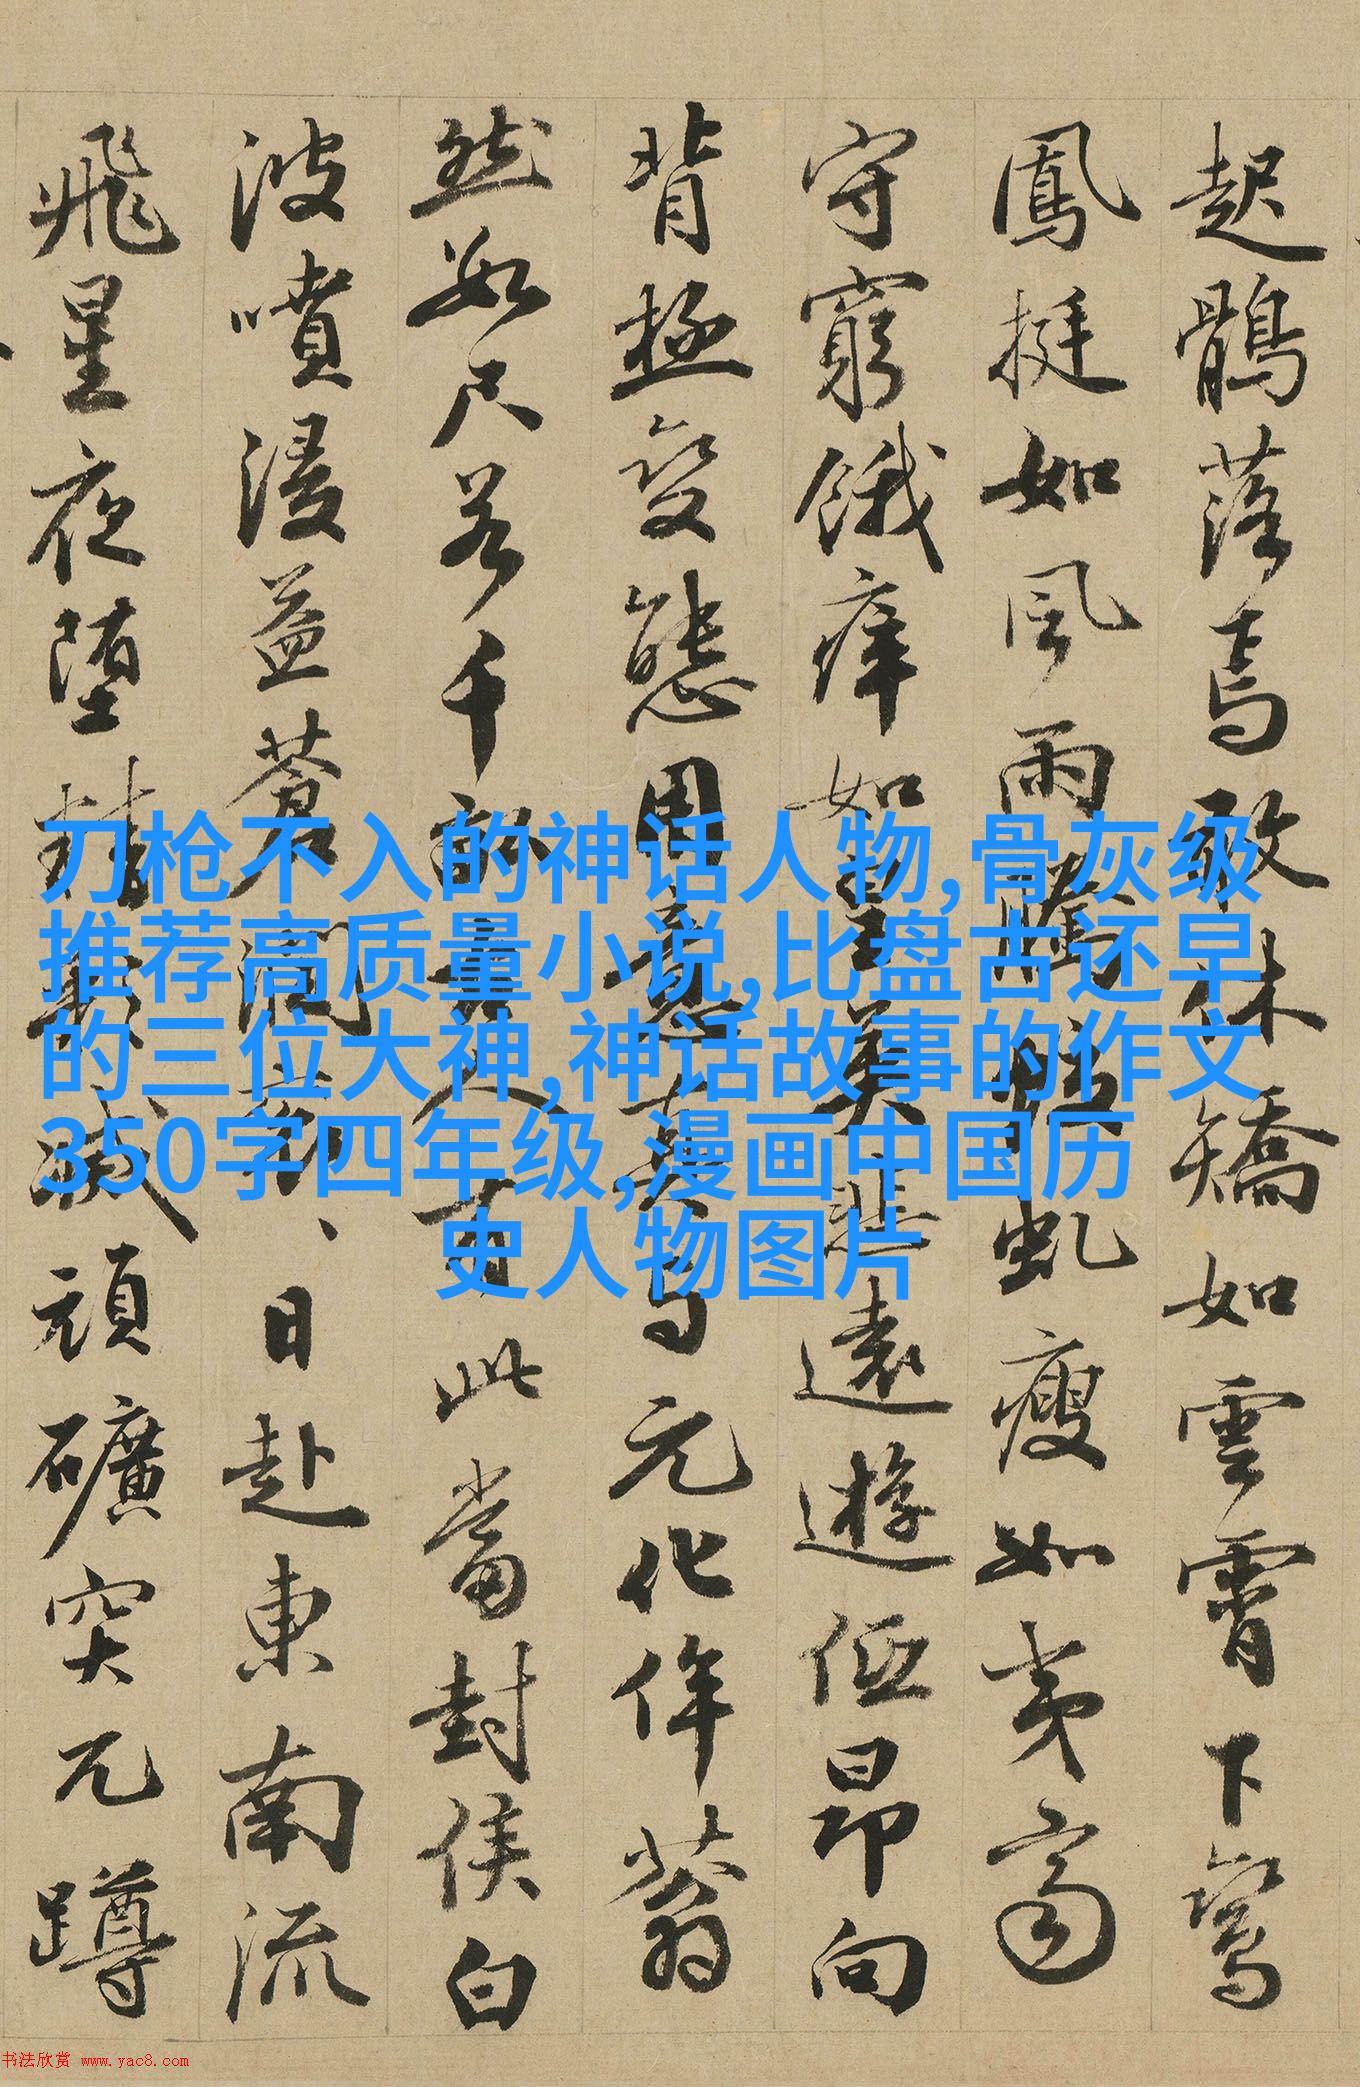 起鶻落焉敢休矯如雲霄下鸞
鳳挺如風雨騰膛虬瘦如夷齊
守窮餓癢如皇英悲遠遊低昂向
背極變態用意直與元化侔茲
然數尺若千
人有此當封侯白
波噴浸益蒼潤
日赴東南流
飛星夜墮精
頑礦突兀蹲
刀枪不入的神话人物,骨灰级
推荐高质量小说,比盘古还早
的三位大神,神话故事的作文
350字四年级,漫画中国历
史人物图片
书法欣赏 www.yac8.com